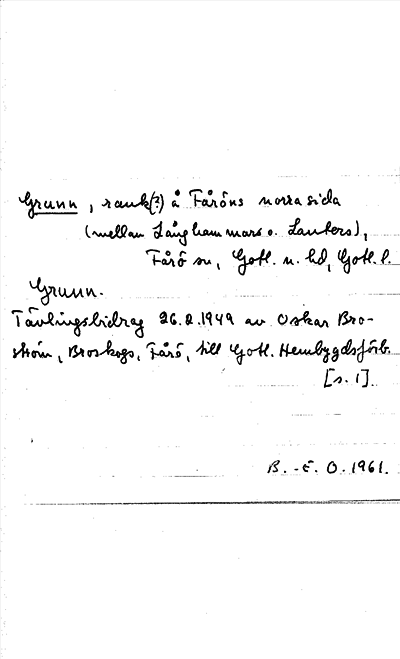 Grunn, rauk(?) å Fåröns norra sida
(mellan Långhammars o. Lauters),
Fårö sn, Gotl. n. hd, Gotl. l.
Grunn.
Tävlingsbidrag 26.2.1949 av Oskar Bro-
ström, Broskogs, Fårö, till Gotl. Hembygdsförb.
[s. 1]
B.-E. O. 1961.